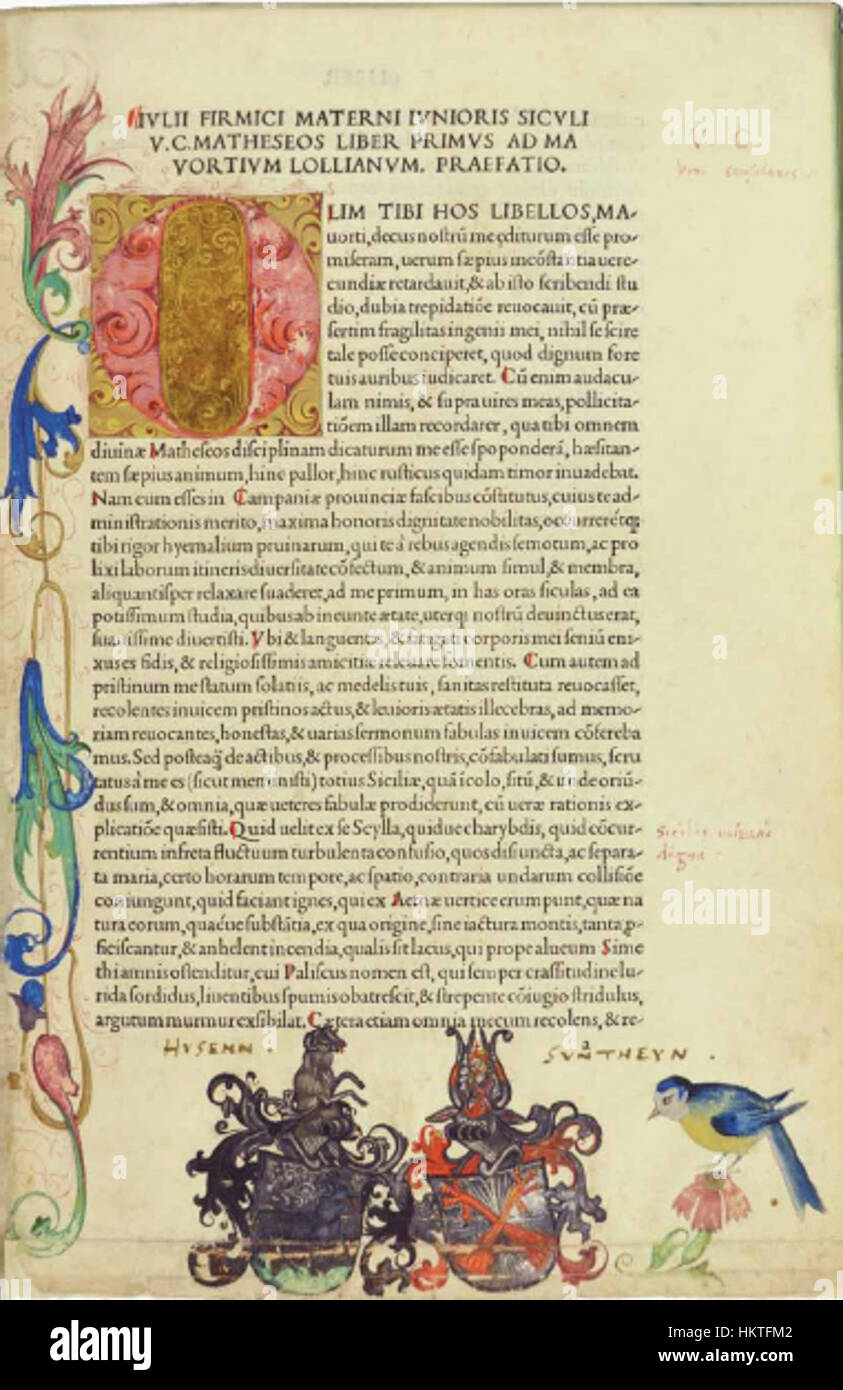 IVLII FIRMICI MATERNI IVNIORIS SICVLI
V.C. MATHESEOS LIBER PRIMVS AD MA
VORTIVM LOLLIANVM. PRAEFATIO.
V C
OLIM TIBI HOS LIBELLOS, MA-
uorti, decus nostrũ me ęditurum esse pro-
miseram, uerum sæpius incõstantia uere-
cundiæ retardauit, & ab isto scribendi stu
dio, dubia trepidatiõe reuocauit, cũ præ-
sertim fragilitas ingenii mei, nihil se scire
tale posse conciperet, quod dignum fore
tuis auribus iudicaret. Cũ enim audacu-
lam nimis, & supra uires meas, pollicita-
tiõem illam recordarer, qua tibi omnem
diuinæ Matheseos disciplinam dicaturum me esse spoponderã, hæsitan-
tem sæpius animum, hinc pallor, hinc rusticus quidam timor inuadebat.
Nam cum esses in Campaniæ prouinciæ fascibus cõstitutus, cuius te ad-
ministrationis merito, maxima honoris dignitate nobilitas, occurreretq;
tibi rigor hyemalium pruinarum, qui te à rebus agendis semotum, ac pro
lixi laborum itineris diuersitate cõfectum, & animum simul, & membra,
aliquantisper relaxare suaderet, ad me primum, in has oras siculas, ad ea
potissimum studia, quibus ab ineunte ætate, uterq; nostrũ deuinctus erat,
suauissime diuertisti. Vbi & languentis, & fatigati corporis mei seniũ eni-
xus es fidis, & religiosissimis amicitiæ releuare fomentis. Cum autem ad
pristinum me statum solatiis, ac medelis tuis, sanitas restituta reuocasset,
recolentes inuicem pristinos actus, & leuioris ætatis illecebras, ad memo-
riam reuocantes, honestas, & uarias sermonum fabulas inuicem cõfereba
mus. Sed posteaq̃ de actibus, & processibus nostris, cõfabulati sumus, scru
tatus à me es (sicut meministi) totius Siciliæ, quã icolo, sitũ, & unde oriũ-
dus sum, & omnia, quæ ueteres fabulæ prodiderunt, cũ ueræ rationis ex-
plicatiõe quæsisti. Quid uelit ex se Scylla, quidue charybdis, quid cõcur-
rentium in freta fluctuum turbulenta confusio, quos disiuncta, ac separa-
ta maria, certo horarum tempore, ac spatio, contraria undarum collisiõe
coniungunt, quid faciant ignes, qui ex Aetnæ uertice erumpunt, quæ na
tura eorum, quæue substãtia, ex qua origine, sine iactura montis, tanta p-
ficiscantur, & anhelent incendia, qualis sit lacus, qui prope alueum Sime
thi amnis ostenditur, cui Paliscus nomen est, qui semper crassitudine lu-
rida sordidus, liuentibus spumis obatrescit, & strepente cõiugio stridulus,
argutum murmur exsibilat. Cætera etiam omnia mecum recolens, & re-
HVSENN .
alamy
a
alamy
Image ID: HKTFM2
www.alamy.com